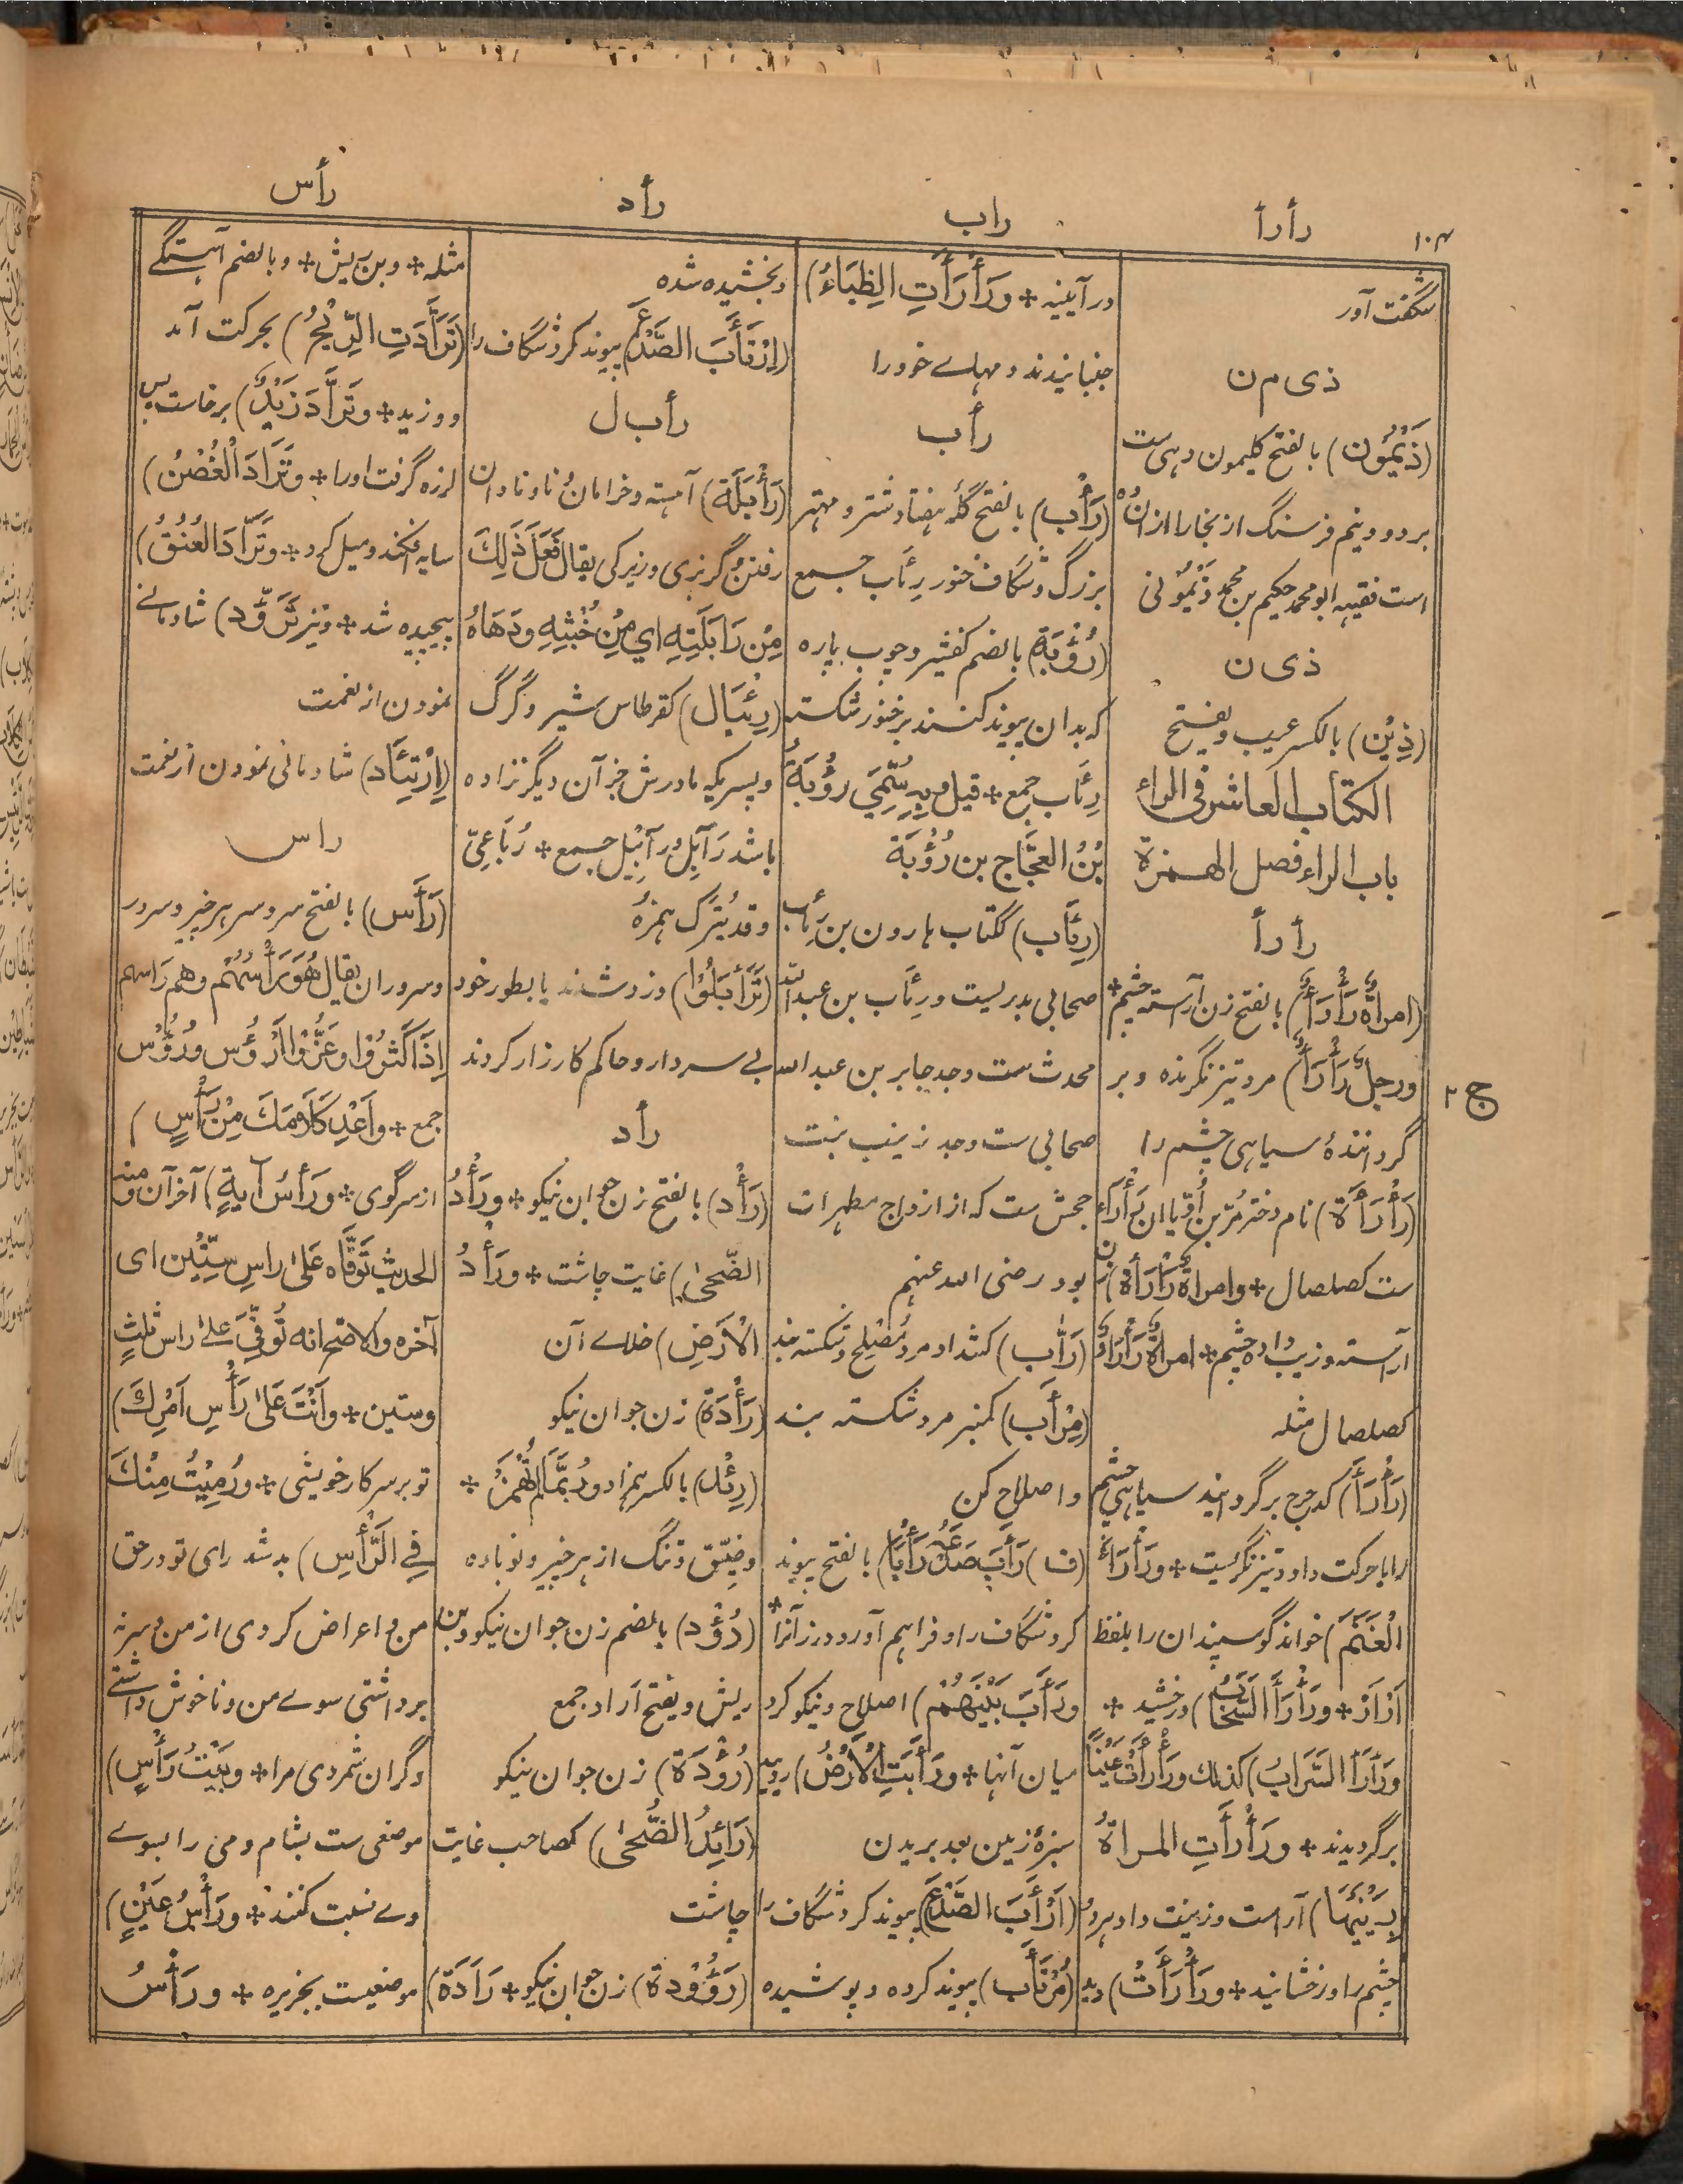 رأس
رأد
راب
رأرأ
۱۰۴
شگفت آور
ذی م ن
(ذَيْمُون) بالفتح کلیمون دهی ست
بر دو و نیم فرسنگ از بخارا ازان
است فقیه ابو محمد حکیم بن محمد ذَیْمُونی
ذی ن
(ذِيْن) بالکسر عیب و یفتح
الکتاب العاشر فی الراء
باب الراء فصل الهمزة
رأرأ
(امراةٌ رَأْرَأٌ) بالفتح زن آراسته چشم *
ورجلٌ رَأْرَأٌ) مرد تیز نگرنده و بر
گردانندۀ سیاهی چشم را
(رَأْرَأَة) نام دختر مُرّ بن اُدّ یا ان رَأْرَاء
ست کصلصال * وامراةٌ رَأْرَأَةٌ) زن
آراسته وزیب داده چشم * امراةٌ رَأْرَاءٌ
کصلصال مثله
(رَأْرَأَ) کدحرج برگردانید سیاهی چشم
را یا حرکت داد و تیز نگریست * ورَأْرَأَ
الْغَنَمَ) خواند گوسپندان را بلفظ
اَرْاَرْ * ورَأْرَأَ السَّحَابُ) درخشید *
ورَأْرَأَ السَّرَابُ) کذلک ورَأْرَأَتْ عَيْنَا
برگردیدند * ورَأْرَأَتِ المراةُ
بِعَيْنَيْهَا) آراست و زینت داد هردو
چشم را و رخشانید * ورَأْرَأَتْ) دید
در آیینه * ورَأْرَأَتِ الظِبَاءُ)
جنبانیدند دمهاے خود را
رأب
(رَأْب) بالفتح گلۀ هفتاد شتر و مهتر
بزرگ و شگاف خنور رِئَاب جمع
(رُؤْبَة) بالضم کفشیر و چوب پاره
که بدان پیوند کنند بر خنور شکسته
رِئَاب جمع * قیل وبه سُمِّيَ رؤْبَةُ
بْنُ العجَّاج بن رُؤْبَة
(رِئَاب) ککتاب هارون بن رِئاب
صحابی بدریست ورِئَاب بن عبد الله
محدث ست وجد جابر بن عبد الله
صحابی ست وجد زینب بنت
جحش ست که از ازواج مطهرات
بود رضی الله عنهم
(رَأَّب) کشداد مرد مُصْلِح و شکسته بند
(مِرْأَب) کمنبر مرد شکسته بند
و اصلاح کن
(ف) رَأَبَ صَدْعَهُ رَأْبًا) بالفتح پیوند
کرد شگاف را و فراهم آورد درز آنرا *
ورَأَبَ بَيْنَهُمْ) اصلاح و نیکو کرد
میان آنها * ورَأَبَتِ الْاَرْضُ) روید
سبزۀ زمین بعد بریدن
(اَرْأَبَ الصَّدْعَ) پیوند کرد شگاف را
(مُرْتَأَب) پیوند کرده و پوشیده
و بخشیده شده
(اِرْتَأَبَ الصَّدْعَ) پیوند کرد شگاف را
رأب ل
(رَأْبَلَة) آهسته و خرامان و ناونا وان
رفتن و گربزی و زیرکی یقال فَعَلَ ذٰلِكَ
مِنْ رَابَلَتِهِ اي مِنْ خُبْثِهِ ودَهَاهُ
(رِئْبَال) کقرطاس شیر و گرگ
و پسریکه مادرش جز آن دیگر نزاده
باشد رَآبِل ورَآبِيْل جمع * رُبَاعِيّ
وقد یُترک همزهُ
(تَرَأْبَلُوْا) دزد شدند یا بطور خود
بے سردار و حاکم کارزار کردند
رأد
(رَأْد) بالفتح زن جوان نیکو * ورَأْدُ
الضّحىٰ) غایت چاشت * ورَأْدُ
الْاَرْضِ) خلاے آن
(رَأْدَة) زن جوان نیکو
(رِئْد) بالکسر همزاد ورُبَّمَا لَمْ يُهْمَزْ *
وضِیْق و تنگ از هر چیز و نوباده
(رُؤْد) بالضم زن جوان نیکو و بن
ریش و یفتح آراد جمع
(رُؤْدَة) زن جوان نیکو
(رَائِدُ الضُّحىٰ) کصاحب غایت
چاشت
(رَؤُوْدة) زن جوان نیکو * رَادَة)
مثله * وبن ریش * وبالضم آهستگے
(تَرَأَّدَتِ الرِّيْحُ) بحرکت آمد
و وزید * وتَرَأَّدَ زَيْدٌ) برخاست پس
لرزه گرفت اورا * وتَرَأَّدَ الْغُصْنُ)
سایه افگند و میل کرد * وتَرَأَّدَ العُنُقُ)
پیچیده شد * ونیز تَرَؤُّد) شادمانے
نمودن از نعمت
(اِرْتِئَاد) شادمانی نمودن از نعمت
راس
(رَأْس) بالفتح سر و سر هر چیز و سرور
و سروران یقال هُوَ رَأْسُهُمْ وهم رَاسهم
اِذَا كَثُرُوْا وعَزُّوْا اَرْؤُس ورُؤُوْس
جمع * واَعِدْ كَلَامَكَ مِنْ رَأْسٍ)
از سر گوی * ورَأْسُ اٰيةٍ) آخر آن ومنه
الحدیث تَوَفَّاه عَلىٰ راسِ سِتِّيْن ای
آخره والاصح انه تُوُفِّيَ علیٰ راس ثلثٍ
وستین * واَنْتَ عَلىٰ رَأْسِ اَمْرِكَ)
تو بر سر کار خویشی * ورُمِيْتُ مِنْكَ
فِي الرَّأْسِ) بد شد رای تو در حق
من و اعراض کردی از من و سر نه
برداشتی سوے من و ناخوش داشتے
و گران شمردی مرا * وبَيْتُ رَأْسٍ)
موضعی ست بشام و می را بسوے
وے نسبت کنند * ورَأْسُ عَيْنٍ)
موضعیست بجزیره * ورَأْسُ
ج ۲